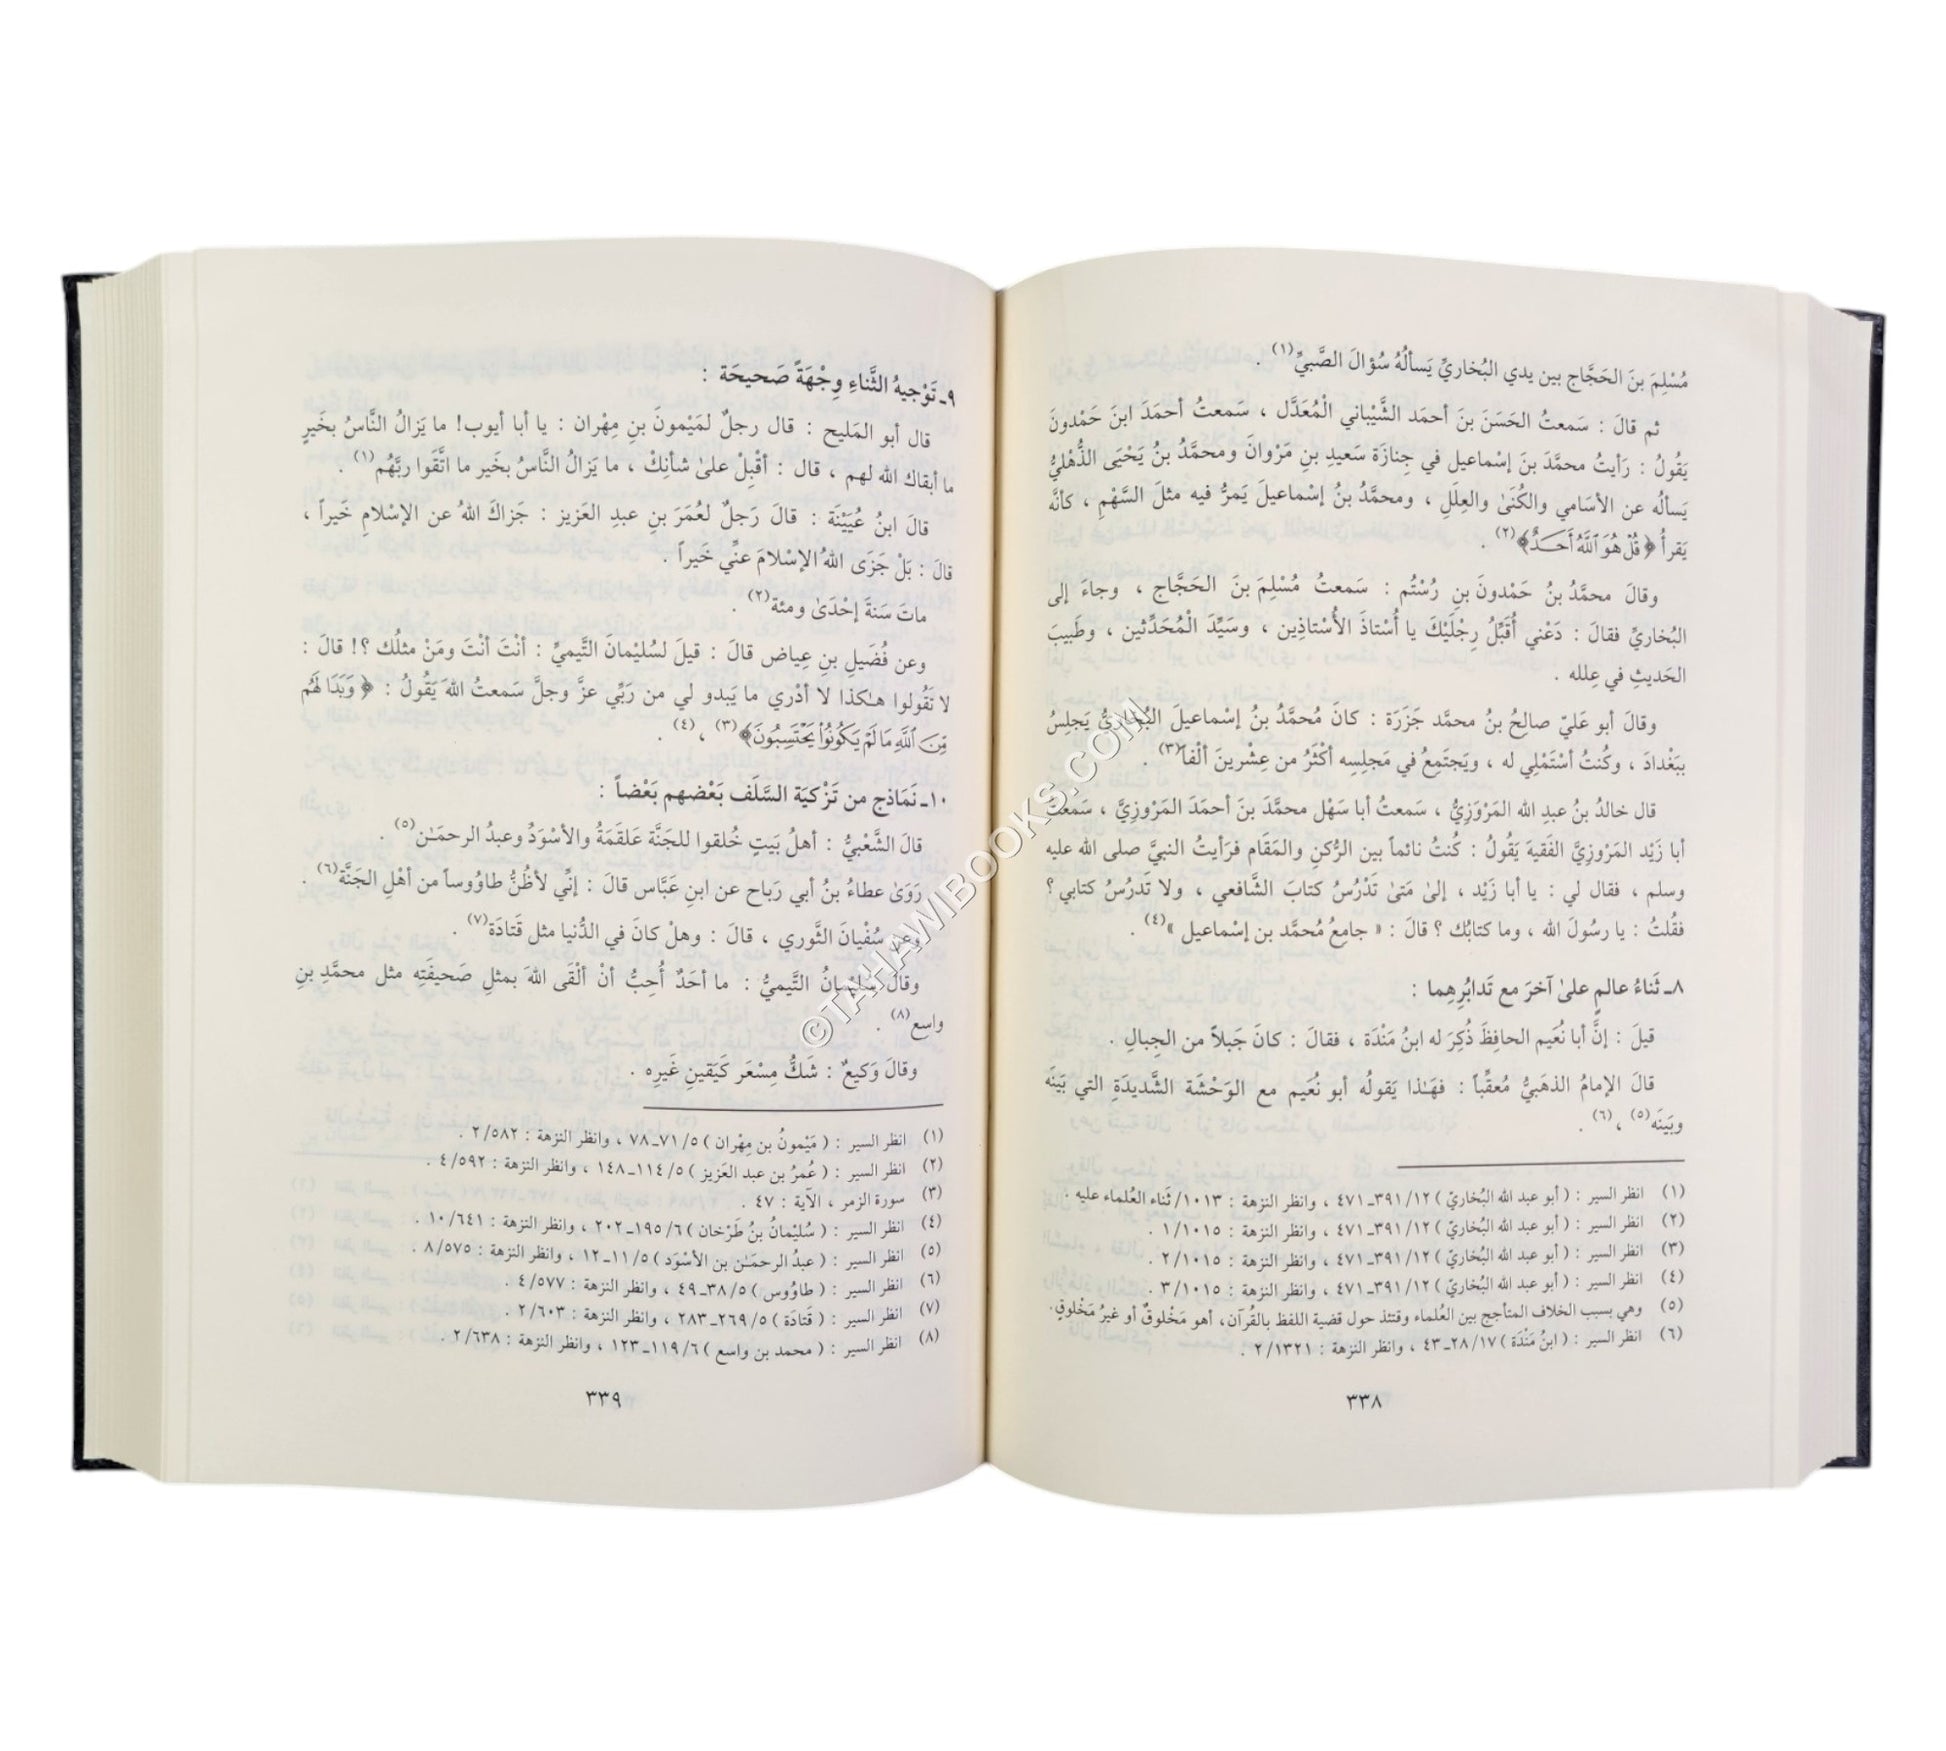 مُسْلِمَ بنَ الحَجَّاج بين يدي البُخاريِّ يَسألُهُ سُؤالَ الصَّبيِّ(١) .
ثم قالَ : سَمعتُ الحَسَنَ بنَ أحمَد الشَّيْباني الْمُعَدَّل ، سَمعتُ أحمَدَ ابنَ حَمْدونَ
يَقُولُ : رَأيتُ محمَّدَ بنَ إسْماعيل في جِنازَة سَعيدِ بنِ مَرْوانَ ومحمَّدُ بنُ يَحْيَى الذُّهْليُّ
يَسألُه عن الأسَامي والكُنَىٰ والعِلَلِ ، ومحمَّدُ بنُ إسْماعيلَ يَمرُّ فيه مثلَ السَّهْمِ ، كأنَّه
يَقرأُ ﴿ قُلْ هُوَ ٱللَّهُ أَحَدٌ ﴾(٢) .
وقالَ محمَّدُ بنُ حَمْدونَ بنِ رُسْتُم : سَمعتُ مُسْلِمَ بنَ الحَجَّاج ، وجاءَ إلى
البُخاريِّ فقالَ : دَعْني أُقَبِّلُ رِجْلَيْكَ يا أُسْتاذَ الأُسْتاذِين ، وسَيِّدَ الْمُحَدِّثين ، وطَبيبَ
الحَديثِ في عِلله .
وقالَ أبو عَليّ صالحُ بنُ محمَّد جَزَرَة : كانَ مُحمَّدُ بنُ إسْماعيلَ البُخاريُّ يَجلِسُ
ببَغْدادَ ، وكُنتُ أسْتَمْلِي له ، ويَجتَمِعُ في مَجلِسِه أكْثَرُ من عِشْرينَ ألْفاً(٣) .
قال خالدُ بنُ عبدِ الله المَرْوَزِيُّ ، سَمعتُ أبا سَهْل محمَّدَ بنَ أحمَدَ المَرْوزِيَّ ، سَمعتُ
أبا زَيْد المَرْوزِيَّ الفَقيهَ يَقُولُ : كُنتُ نائماً بين الرُّكنِ والمَقَام فرَأيتُ النبيَّ صلى الله عليه
وسلم ، فقال لي : يا أبا زَيْد ، إلىٰ مَتىٰ تَدْرُسُ كتابَ الشَّافعي ، ولا تَدرُسُ كتابي ؟
فقُلتُ : يا رسُولَ الله ، وما كتابُك ؟ قالَ : « جامِعُ مُحمَّد بن إسْماعيل »(٤) .
٨ـ ثَناءُ عالمٍ علىٰ آخرَ مع تَدابُرِهِما :
قيلَ : إنَّ أبا نُعَيم الحافِظَ ذُكِرَ له ابنُ مَنْدَة ، فقالَ : كانَ جَبلاً من الجِبالِ .
قالَ الإمامُ الذهَبيُّ مُعقِّباً : فهَـٰذا يَقولُه أبو نُعَيم مع الوَحْشَة الشَّديدَةِ التي بَينَه
وبَينَه(٥) ، (٦) .
(١) انظر السير : ( أبو عبد الله البُخاريّ ) ١٢/ ٣٩١ـ٤٧١ ، وانظر النزهة : ١٠١٣/ ثَناء العُلماء عليه .
(٢) انظر السير : ( أبو عبد الله البُخاريّ ) ١٢/ ٣٩١ـ٤٧١ ، وانظر النزهة : ١/١٠١٥ .
(٣) انظر السير : ( أبو عبد الله البُخاريّ ) ١٢/ ٣٩١ـ٤٧١ ، وانظر النزهة : ٢/١٠١٥ .
(٤) انظر السير : ( أبو عبد الله البُخاريّ ) ١٢/ ٣٩١ـ٤٧١ ، وانظر النزهة : ٣/١٠١٥ .
(٥) وهي بسبب الخلاف المتأجج بين العُلماء وقتئذ حول قضية اللفظ بالقُرآن، أهو مَخْلوقٌ أو غيرُ مَخْلوقٍ.
(٦) انظر السير : ( ابنُ مَنْدَة ) ١٧/ ٢٨ـ٤٣ ، وانظر النزهة : ٢/١٣٢١ .
٣٣٨
٩ـ تَوْجيهُ الثَّناءِ وِجْهَةً صَحيحَة :
قال أبو المَليح : قال رجلٌ لمَيْمونَ بنِ مِهْران : يا أبا أيوب! ما يَزالُ النَّاسُ بخَيرٍ
ما أبقاك الله لهم ، قال : أقْبِلْ علىٰ شأنِكْ ، ما يَزالُ النَّاسُ بخَير ما اتَّقَوا ربَّهُم(١) .
قالَ ابنُ عُيَيْنَة : قالَ رَجلٌ لعُمَرَ بنِ عبدِ العَزيز : جَزاكَ اللهُ عن الإسْلامِ خَيراً ،
قالَ : بَلْ جَزَى اللهُ الإسْلامَ عنِّي خَيراً .
ماتَ سَنةَ إحْدَىٰ ومئة(٢) .
وعن فُضَيلِ بنِ عِياض قالَ : قيلَ لسُليْمانَ التَّيميِّ : أنْتَ أنْتَ ومَنْ مثلُك ؟! قالَ :
لا تَقُولوا هـٰكذا لا أدْري ما يَبدو لي من رَبِّي عزَّ وجلَّ سَمعتُ اللهَ يَقُولُ : ﴿ وَبَدَا لَهُم
مِّنَ ٱللَّهِ مَا لَمْ يَكُونُواْ يَحْتَسِبُونَ ﴾(٣) ، (٤) .
١٠ـ نَمَاذج من تَزْكيَة السَّلَف بَعْضهم بَعْضاً :
قالَ الشَّعْبيُّ : أهلُ بَيتٍ خُلقوا للجَنَّة عَلقَمَةُ والأسْوَدُ وعبدُ الرحمَـٰن(٥) .
رَوَىٰ عطاءُ بنُ أبي رَباح عن ابنِ عَبَّاس قالَ : إنِّي لأظُنُّ طاوُوساً من أهْلِ الجَنَّة(٦) .
وعن سُفْيانَ الثَّوري ، قالَ : وهلْ كانَ في الدُّنيا مثل قَتادَة(٧) .
وقالَ سُلَيْمانُ التَّيميُّ : ما أحَدٌ أُحِبُّ أنْ ألْقَى اللهَ بمثلِ صَحيفَتِه مثل محمَّدِ بنِ
واسِع(٨) .
وقالَ وَكيعٌ : شَكُّ مِسْعَر كَيَقينِ غَيرِه .
(١) انظر السير : ( مَيْمونُ بن مِهْران ) ٥/ ٧١ـ٧٨ ، وانظر النزهة : ٢/٥٨٢ .
(٢) انظر السير : ( عُمرُ بن عبد العَزيز ) ٥/ ١١٤ـ١٤٨ ، وانظر النزهة : ٤/٥٩٢ .
(٣) سورة الزمر ، الآية : ٤٧ .
(٤) انظر السير : ( سُليْمانُ بنُ طَرْخان ) ٦/ ١٩٥ـ٢٠٢ ، وانظر النزهة : ١٠/٦٤١ .
(٥) انظر السير : ( عبدُ الرحمَـٰن بن الأسْوَد ) ٥/ ١١ـ١٢ ، وانظر النزهة : ٨/٥٧٥ .
(٦) انظر السير : ( طاوُوس ) ٥/ ٣٨ـ٤٩ ، وانظر النزهة : ٤/٥٧٧ .
(٧) انظر السير : ( قَتادَة ) ٥/ ٢٦٩ـ٢٨٣ ، وانظر النزهة : ٢/٦٠٣ .
(٨) انظر السير : ( محمد بن واسع ) ٦/ ١١٩ـ١٢٣ ، وانظر النزهة : ٢/٦٣٨ .
٣٣٩
©TAHAWIBOOKS.COM